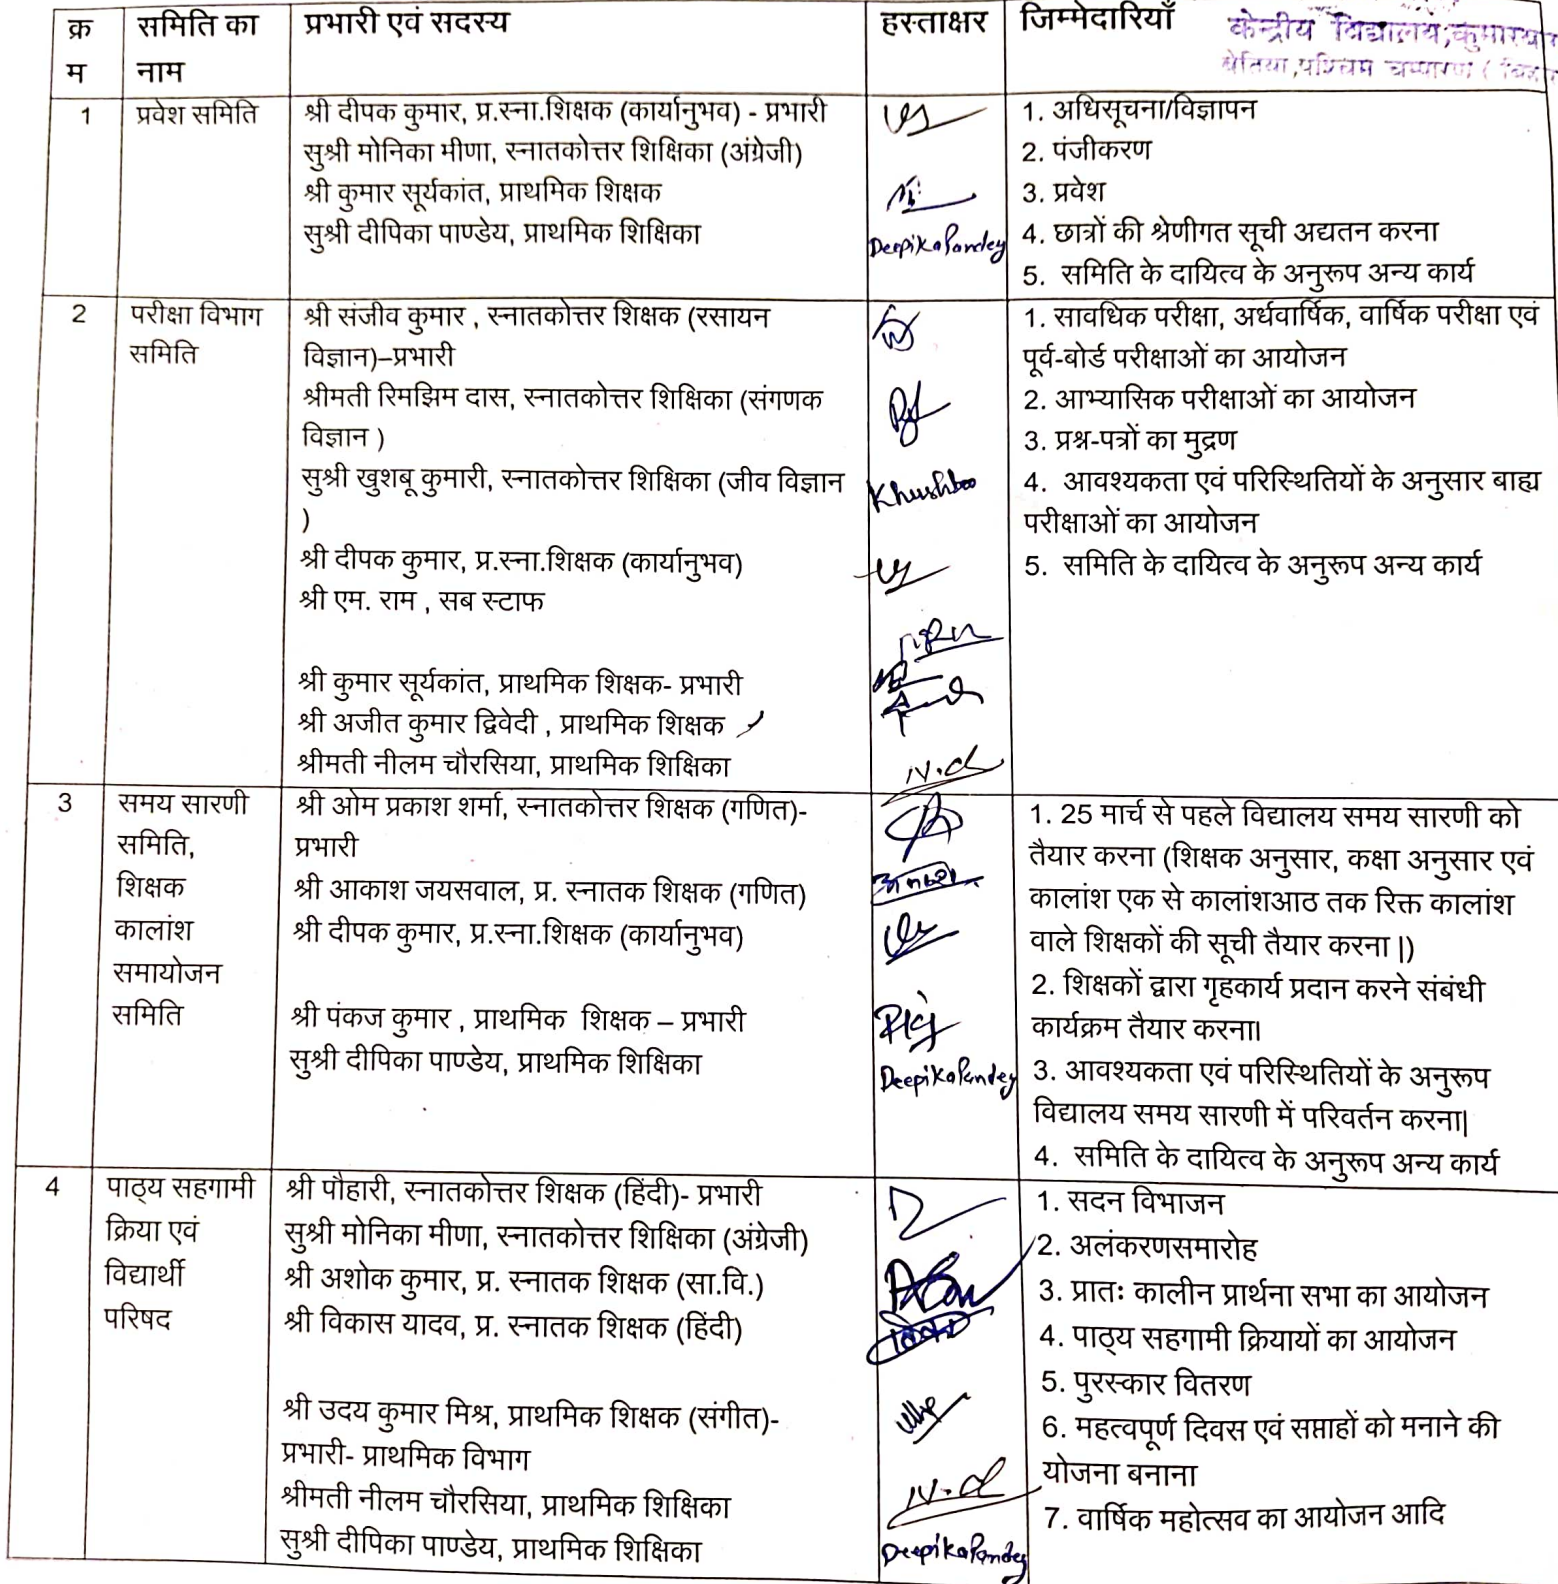 क्र म समिति का नाम प्रभारी एवं सदस्य हस्ताक्षर जिम्मेदारियाँ
केन्द्रीय विद्यालय,
बेतिया,पश्चिम चम्पारण (
1 प्रवेश समिति
श्री दीपक कुमार, प्र.स्ना.शिक्षक (कार्यानुभव) - प्रभारी
सुश्री मोनिका मीणा, स्नातकोत्तर शिक्षिका (अंग्रेजी)
श्री कुमार सूर्यकांत, प्राथमिक शिक्षक
सुश्री दीपिका पाण्डेय, प्राथमिक शिक्षिका
Deepika Pandey
1. अधिसूचना/विज्ञापन
2. पंजीकरण
3. प्रवेश
4. छात्रों की श्रेणीगत सूची अद्यतन करना
5. समिति के दायित्व के अनुरूप अन्य कार्य
2 परीक्षा विभाग
समिति
श्री संजीव कुमार , स्नातकोत्तर शिक्षक (रसायन
विज्ञान)–प्रभारी
श्रीमती रिमझिम दास, स्नातकोत्तर शिक्षिका (संगणक
विज्ञान )
सुश्री खुशबू कुमारी, स्नातकोत्तर शिक्षिका (जीव विज्ञान
)
श्री दीपक कुमार, प्र.स्ना.शिक्षक (कार्यानुभव)
श्री एम. राम , सब स्टाफ
श्री कुमार सूर्यकांत, प्राथमिक शिक्षक- प्रभारी
श्री अजीत कुमार द्विवेदी , प्राथमिक शिक्षक
श्रीमती नीलम चौरसिया, प्राथमिक शिक्षिका
Khushboo
1. सावधिक परीक्षा, अर्धवार्षिक, वार्षिक परीक्षा एवं
पूर्व-बोर्ड परीक्षाओं का आयोजन
2. आभ्यासिक परीक्षाओं का आयोजन
3. प्रश्न-पत्रों का मुद्रण
4. आवश्यकता एवं परिस्थितियों के अनुसार बाह्य
परीक्षाओं का आयोजन
5. समिति के दायित्व के अनुरूप अन्य कार्य
3 समय सारणी
समिति,
शिक्षक
कालांश
समायोजन
समिति
श्री ओम प्रकाश शर्मा, स्नातकोत्तर शिक्षक (गणित)-
प्रभारी
श्री आकाश जयसवाल, प्र. स्नातक शिक्षक (गणित)
श्री दीपक कुमार, प्र.स्ना.शिक्षक (कार्यानुभव)
श्री पंकज कुमार , प्राथमिक शिक्षक – प्रभारी
सुश्री दीपिका पाण्डेय, प्राथमिक शिक्षिका
Deepika Pandey
1. 25 मार्च से पहले विद्यालय समय सारणी को
तैयार करना (शिक्षक अनुसार, कक्षा अनुसार एवं
कालांश एक से कालांशआठ तक रिक्त कालांश
वाले शिक्षकों की सूची तैयार करना |)
2. शिक्षकों द्वारा गृहकार्य प्रदान करने संबंधी
कार्यक्रम तैयार करना।
3. आवश्यकता एवं परिस्थितियों के अनुरूप
विद्यालय समय सारणी में परिवर्तन करना|
4. समिति के दायित्व के अनुरूप अन्य कार्य
4 पाठ्य सहगामी
क्रिया एवं
विद्यार्थी
परिषद
श्री पौहारी, स्नातकोत्तर शिक्षक (हिंदी)- प्रभारी
सुश्री मोनिका मीणा, स्नातकोत्तर शिक्षिका (अंग्रेजी)
श्री अशोक कुमार, प्र. स्नातक शिक्षक (सा.वि.)
श्री विकास यादव, प्र. स्नातक शिक्षक (हिंदी)
श्री उदय कुमार मिश्र, प्राथमिक शिक्षक (संगीत)-
प्रभारी- प्राथमिक विभाग
श्रीमती नीलम चौरसिया, प्राथमिक शिक्षिका
सुश्री दीपिका पाण्डेय, प्राथमिक शिक्षिका
Deepika Pandey
1. सदन विभाजन
2. अलंकरणसमारोह
3. प्रातः कालीन प्रार्थना सभा का आयोजन
4. पाठ्य सहगामी क्रियायों का आयोजन
5. पुरस्कार वितरण
6. महत्वपूर्ण दिवस एवं सप्ताहों को मनाने की
योजना बनाना
7. वार्षिक महोत्सव का आयोजन आदि